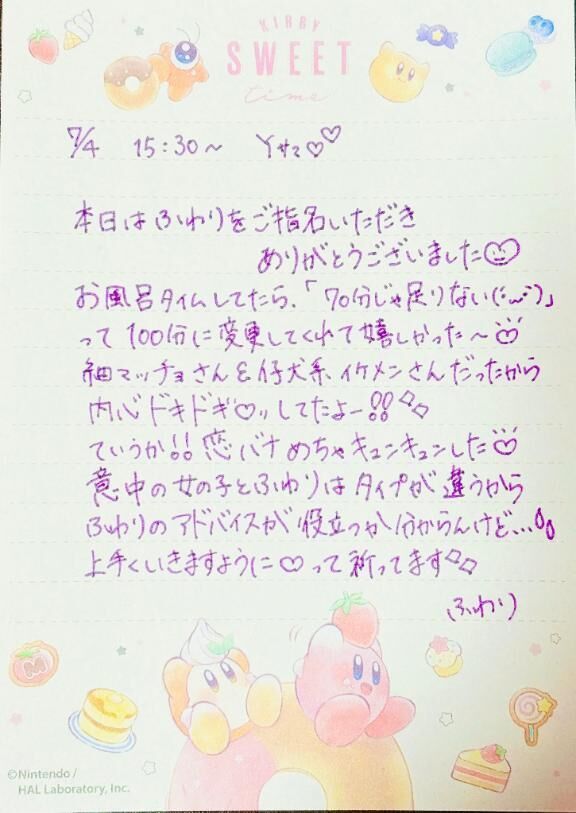 KIRBY
SWEET
time
7/4 15:30~ Yサマ♡♡
本日はふわりをご指名いただき
ありがとうございました♡
お風呂タイムしてたら、「70分じゃ足りない(´･~･`)」
って100分に変更してくれて嬉しかった〜♡
細マッチョさん&仔犬系イケメンさんだったから
内心ドキドキ♡ッしてたよー!!
ていうか!!恋バナめちゃキュンキュンした♡
意中の女の子とふわりはタイプが違うから
ふわりのアドバイスが役立つか分からんけど...
上手くいきますように♡って祈ってます
ふわり
©Nintendo /
HAL Laboratory, Inc.